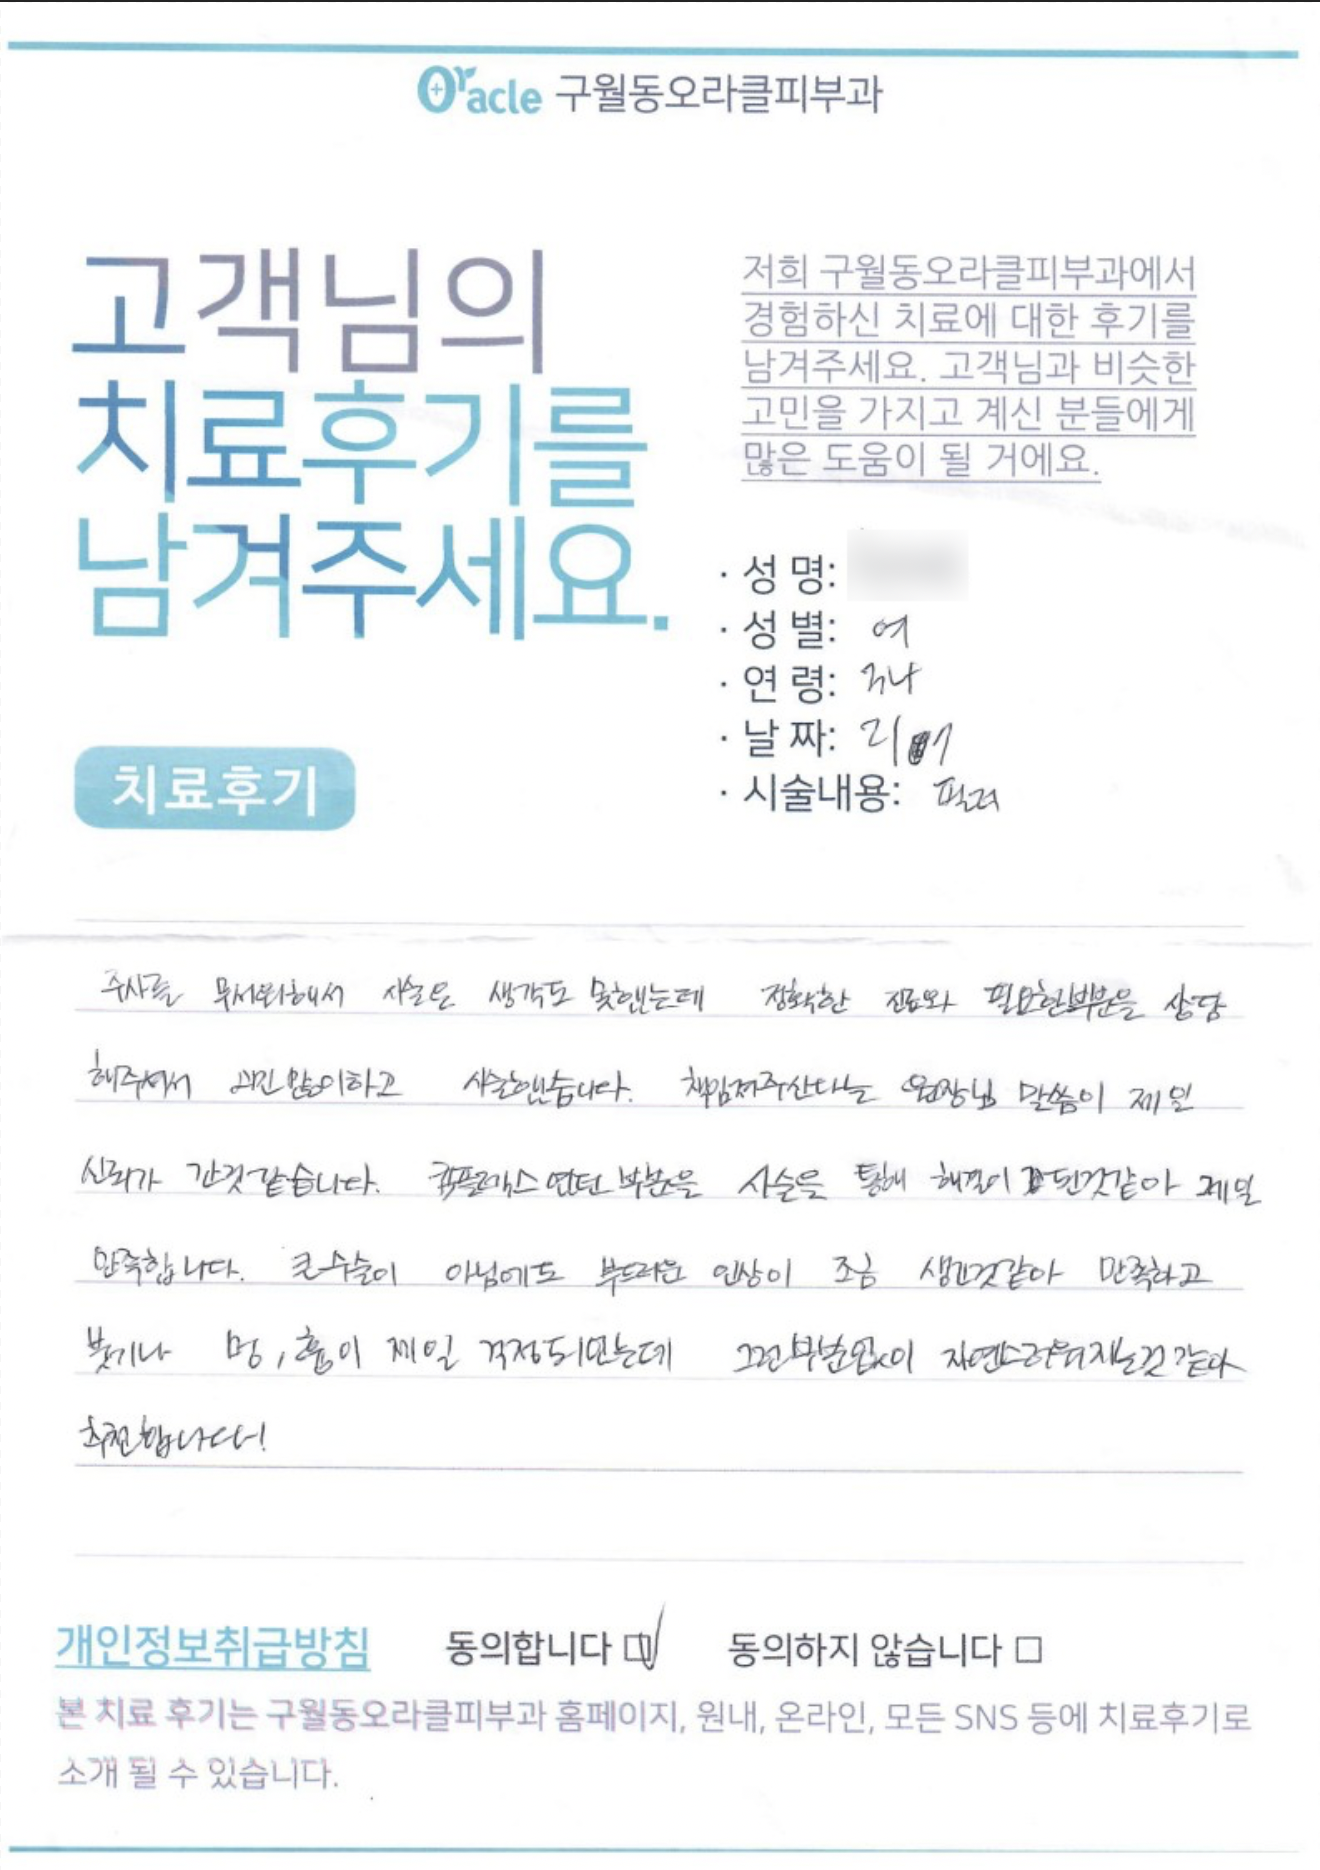 Oracle 구월동오라클피부과
고객님의
치료후기를
남겨주세요.
저희 구월동오라클피부과에서
경험하신 치료에 대한 후기를
남겨주세요. 고객님과 비슷한
고민을 가지고 계신 분들에게
많은 도움이 될 거에요.
· 성 명:
· 성 별: 여
· 연 령:
· 날 짜:
· 시술내용: 필러
치료후기
주사를 무서워해서 시술은 생각도 못했는데 정확한 진료와 필요한부분을 상담
해주셔서 고민않이하고 시술했습니다. 책임져주신다는 원장님 말씀이 제일
신뢰가 간것같습니다. 콤플렉스였던 부분을 시술을 통해 해결이 된것같아 제일
만족합니다. 큰수술이 아님에도 부드러운 인상이 조금 생긴것같아 만족하고
붓기나 멍, 흉이 제일 걱정되었는데 그런부분없이 자연스러워지는것 같아
추천합니다!
개인정보취급방침 동의합니다 동의하지 않습니다
본 치료 후기는 구월동오라클피부과 홈페이지, 원내, 온라인, 모든 SNS 등에 치료후기로
소개 될 수 있습니다.